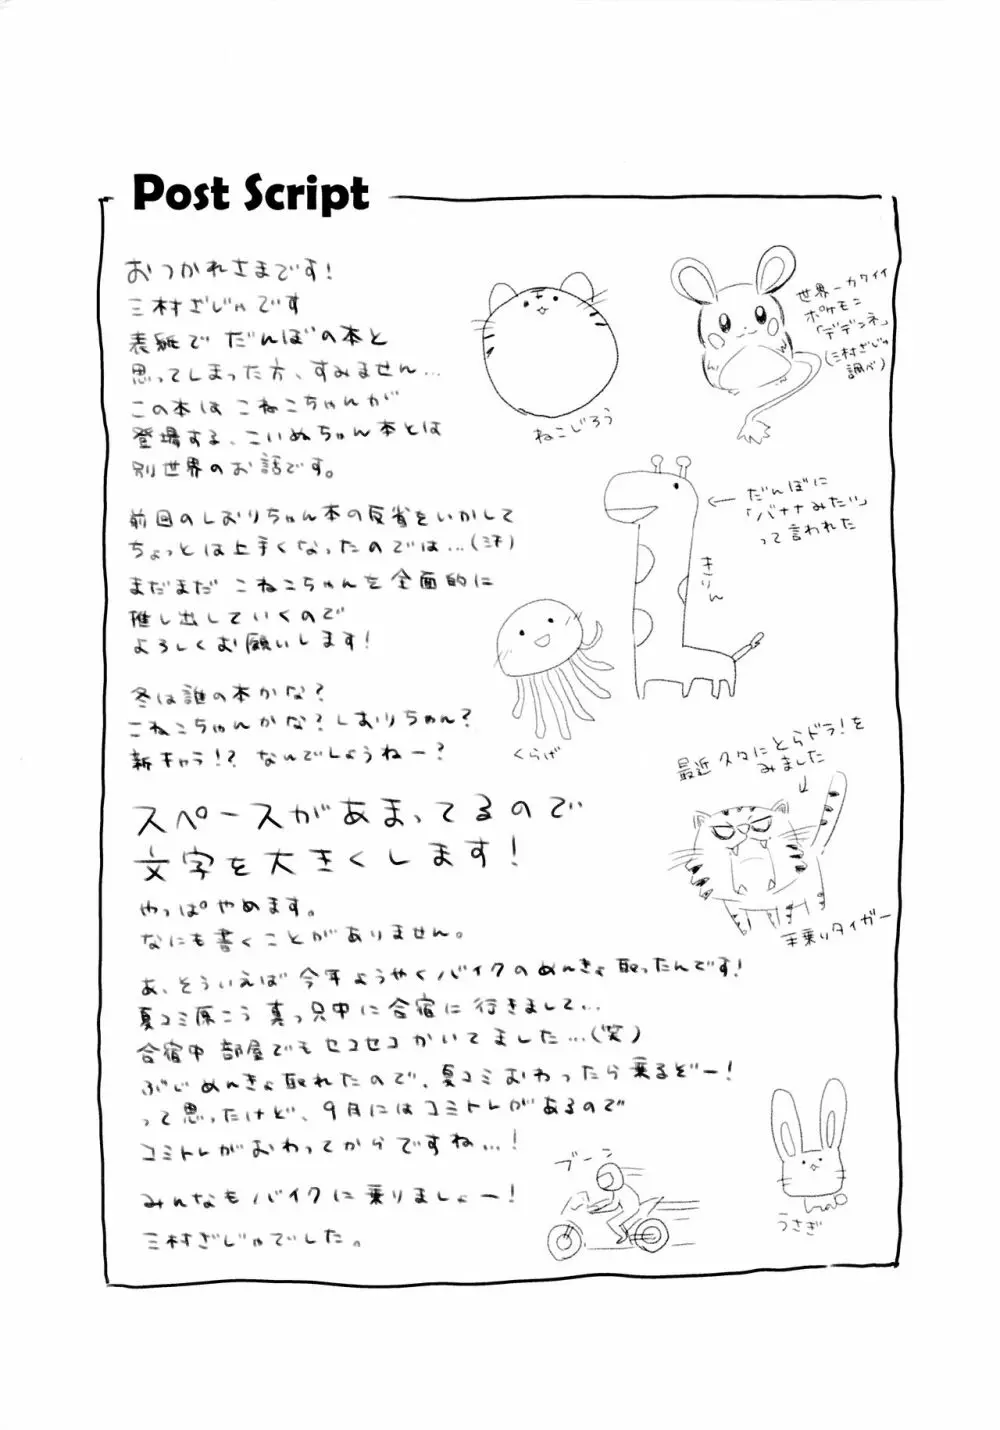 Post Script
おつかれさまです!
三村ざじゃです
表紙でだんぼの本と
思ってしまった方、すみません…
この本はこねこちゃんが
登場する、こいぬちゃん本とは
別世界のお話です。
前回のしおりちゃん本の反省をいかして
ちょっとは上手くなったのでは…(汗)
まだまだこねこちゃんを全面的に
推し出していくので
よろしくお願いします!
冬は誰の本かな?
こねこちゃんかな?しおりちゃん?
新キャラ!?なんでしょうねー?
スペースがあまってるので
文字を大きくします!
やっぱやめます。
なにも書くことがありません。
あ、そういえば今年ようやくバイクのめんきょ取ったんです!
夏コミ原こう真っ只中に合宿に行きまして…
合宿中部屋でもセコセコかいてました…(笑)
ぶじめんきょ取れたので、夏コミおわったら乗るぞー!
って思ったけど、9月にはコミトレがあるので
コミトレがおわってからですね…!
みんなもバイクに乗りましょー!
三村ざじゃでした。
ねこじろう
世界一カワイイ
ポケモン
「デデンネ」
(三村ざじゃ
調べ)
←だんぼに
「バナナみたい」
って言われた
きりん
くらげ
最近久々にとらドラ!を
みました
↓
手乗りタイガー
ブーン
うさぎ